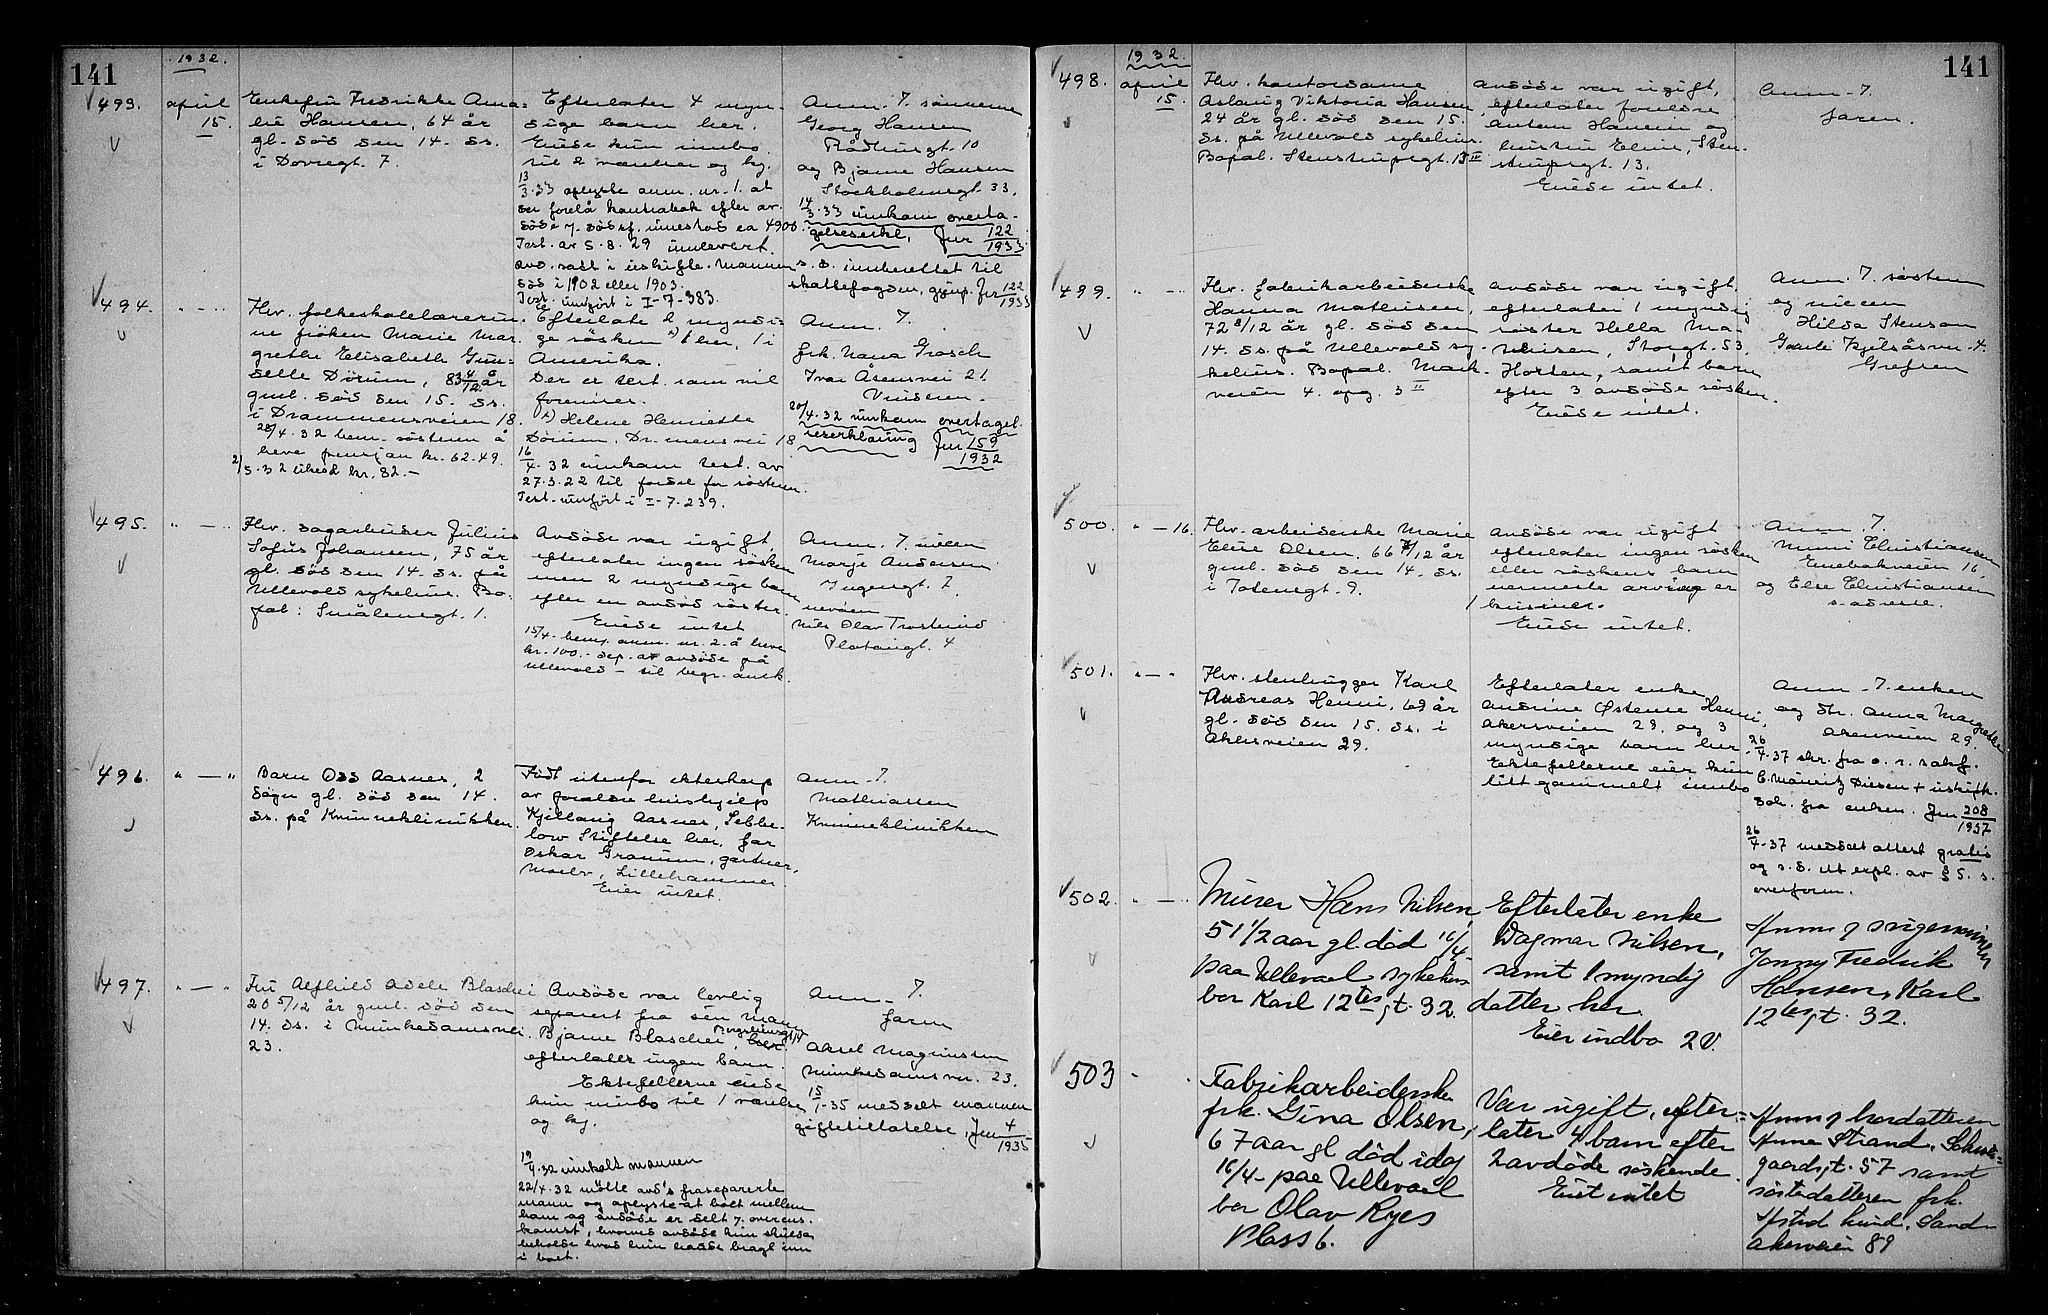 141
1932.
493.
april
15.
Enkefru Fredrikke Ama-
lie Hansen, 64 år
gl. död den 14. ds.
i Dovregt. 7.
Efterlater 4 myn-
dige barn her.
Eiede kun innbo
til 2 værelser og kj.
13/3-33 oplyste anm. nr. 1. at
der forelå kontrabok efter av-
Test. av 5.8.29 innlevert.
avd. satt i uskifte. Mannen
död i 1902 eller 1903.
Test. innfört i I-7-383.
Anm. 7. sönnerne
Georg Hansen
Rådhusgt. 10
og Bjarne Hansen
Stockholmsgt. 33.
14/3-33 innkom overta-
gelseserkl. Jnr 122/1933
s.d. innberettet til
skattefogden, Jnr 122/1933
494.
" — "
Fhv. folkeskolelærerin-
ne fröken Marie Mar-
grethe Elisabeth Gun-
delle Dörum, 83 år
gml. död den 15. ds.
i Drammensveien 18.
28/4-32 bem. sösteren å
heve pensjon kr. 62.49.
2/5-32 likeså kr. 82.-
Efterlater 2 myndi-
ge sösken x) 1 her, 1 i
Amerika.
Der er test. som vil
x) Helene Henriette
Dörum, Dr. mensvei 18
16/4-32 innkom test. av
27.3.22 til fordel for sösteren.
Test. innfört i I-7-239.
Anm. 7.
frk. Nana Grosch
Ivar Åsensvei 21.
Vinderen.
20/4-32 innkom overtagel-
seserklæring Jnr 159/1932
495.
" — "
Fhv. sagarbeider Julius
Sofus Johansen, 75 år
gl. död den 14. ds. på
Ullevold sykehus. Bo-
pæl: Smålensgt. 1.
Avdöde var ugift,
efterlater ingen sösken
men 2 myndige barn
efter en avdöd söster.
Eiede intet
15/4- bemy. anm. nr. 2. å heve
kr. 100.- dep. av avdöde på
Ullevold - til begr. omk.
Anm. 7. niecen
Marje Andersen
nevöen
Nils Olav Trosterud
Platousgt. 4
496.
" — "
Barn Odd Aasnes, 2
dager gl. död den 14.
ds. på Kvinneklinikken.
Födt utenfor ekteskap
av foreldre hushjelp
Kjellaug Aasnes, Sebbe-
low Stiftelse her, far
Oskar Granum, gartner,
Moelv, Lillehammer.
Eier intet.
Anm. 7.
Mathiassen
Kvinneklinikken
497.
" — "
Fru Alfhild Adele Blaschei
20 5/12 år gml. död den
14. ds. i Munkedamsvei
23.
Avdöde var lovlig
separert fra sin mann
Bjarne Blaschei,
efterlater ingen barn.
Ektefellerne eiede
kun innbo til 1 værelse
og kj.
19/4-32 innkalt mannen
22/4-32 mötte avd's fraseparerte
mann og oplyste at boet mellem
ham og avdöde er delt 7. overens-
komst, hvorved avdöde kun skulde
beholde hvad hun hadde bragt inn
i boet.
Anm. 7.
faren
Aksel Magnussen
Munkedamsvn. 23.
15/1-35 meddelt mannen
giftetillatelse, Jnr 4/1935
141
1932.
498.
april
15.
Fhv. kontordame
Aslaug Viktoria Hansen
24 år gl. död den 15.
ds. på Ullevold sykehus.
Bopæl. Stenstrupsgt. 13 II
Avdöde var ugift,
efterlater foreldre
Anton Hansen og
hustru Eline, Sten-
strupsgt. 13.
Eiede intet.
Anm. 7.
faren.
499.
" — "
Fhv. fabrikarbeiderske
Hanna Mathisen,
72 8/12 år gl. död den
14. ds. på Ullevold sy-
kehus. Bopæl. Mark-
veien 4. opg. 3 II
Avdöde var ugift.
efterlater 1 myndig
söster Hella Ma-
thisen, Storgt. 53,
Horten, samt barn
efter 3 avdöde sösken.
Eiede intet.
Anm. 7. sösteren
og niecen
Hilda Stenson
Gamle Kjelsåsvn. 4.
Grefsen
500.
" — 16.
Fhv. arbeiderske Marie
Elise Olsen, 66 7/12 år
gml. död den 14. ds.
i Totensgt. 9.
Avdöde var ugift
efterlater ingen sösken
eller söskens barn
nærmeste arving er
Eiede intet.
Anm. 7.
Mimi Christiansen
Enebakveien 16.
og Else Christiansen
s. adresse.
501.
" — "
Fhv. stenhugger Karl
Andreas Henni, 69 år
gl. död den 15. ds. i
Akersveien 29.
Efterlater enke
Andrine Østerne Henni,
Akersveien 29. og 3
myndige barn her
Ektefellerne eier kun
litt gammelt innbo
Anm. 7. enken
og dtr. Anna Margrethe
Akersveien 29.
26/4-37 skr. fra o.r. sakf.
C. Mouritz Diesen + uskift.
dok. fra enken. Jnr 208/1937
26/4-37 meddelt attest gratis
og s.d. ett expl. av § 5. s.
overform.
502.
" — "
Murer Hans Nilsen,
51 1/2 aar gl død 16/4-
paa Ullevaal sykehus
bor Karl 12tes gt. 32.
Efterlater enke
Dagmar Nilsen,
samt 1 myndig
datter her.
Eier indbo 2 V.
Anm 7 svigersønnen
Jonny Fredrik
Hansen, Karl
12tes gt. 32.
503
" "
Fabrikarbeiderske
frk. Gina Olsen,
67 aar gl død idag
16/4- paa Ullevaal
bor Olav Ryes
Plass 6.
Var ugift, efter-
later 4 barn efter
2 avdøde søskende.
Eiet intet
Anm 7 brordatteren
Anna Strand, Schwei-
gaardsgt. 57 samt
søsterdatteren frk.
Astrid Lund, Sand-
akerveien 89